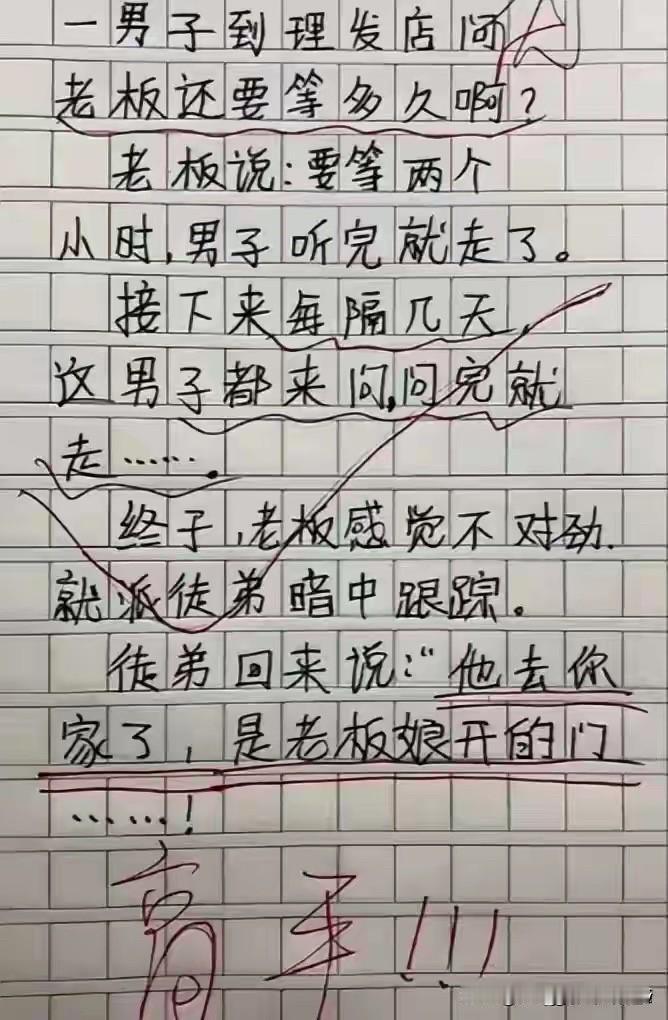 一男子到理发店问
老板还要等多久啊?
老板说:要等两个
小时,男子听完就走了。
接下来每隔几天,
这男子都来问,问完就
走……。
终于,老板感觉不对劲.
就派徒弟暗中跟踪。
徒弟回来说:“他去你
家了,是老板娘开的门
……!
高手!!!